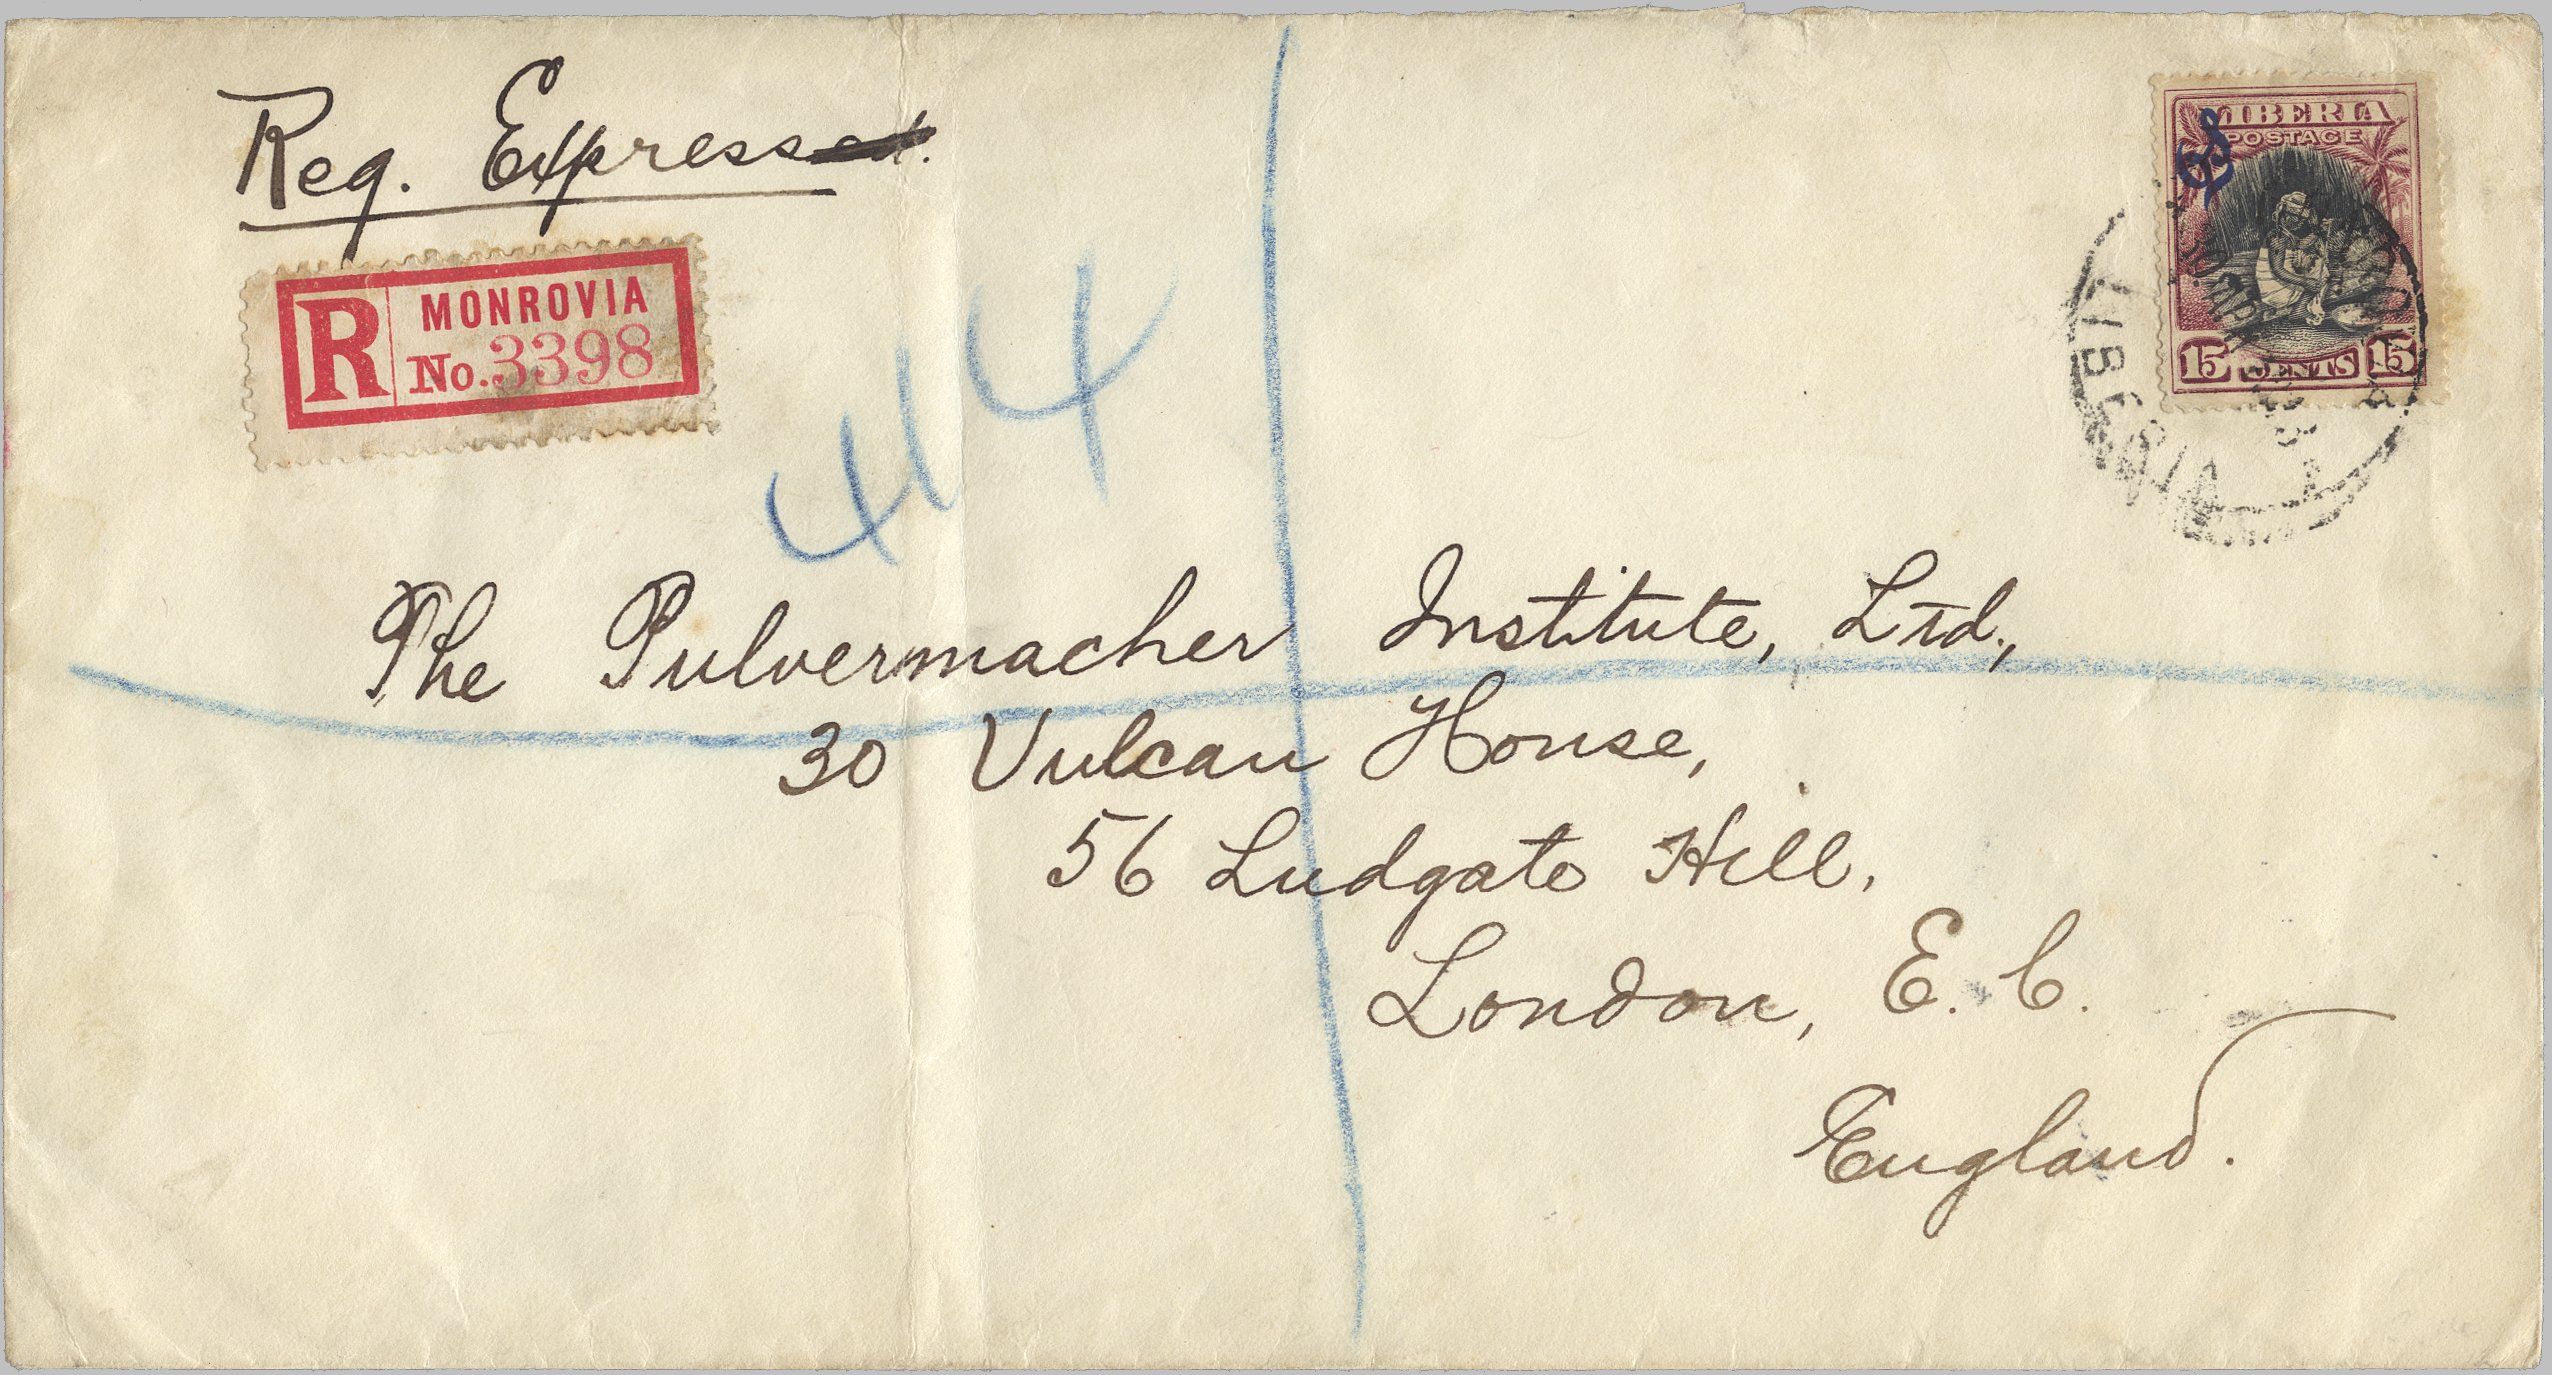 Reg. Express
R MONROVIA
No. 3398
LIBERIA
POSTAGE
15 CENTS 15
LIBERIA
414
The Pulvermacher Institute, Ltd.,
30 Vulcan House,
56 Ludgate Hill,
London, E. C.
England.